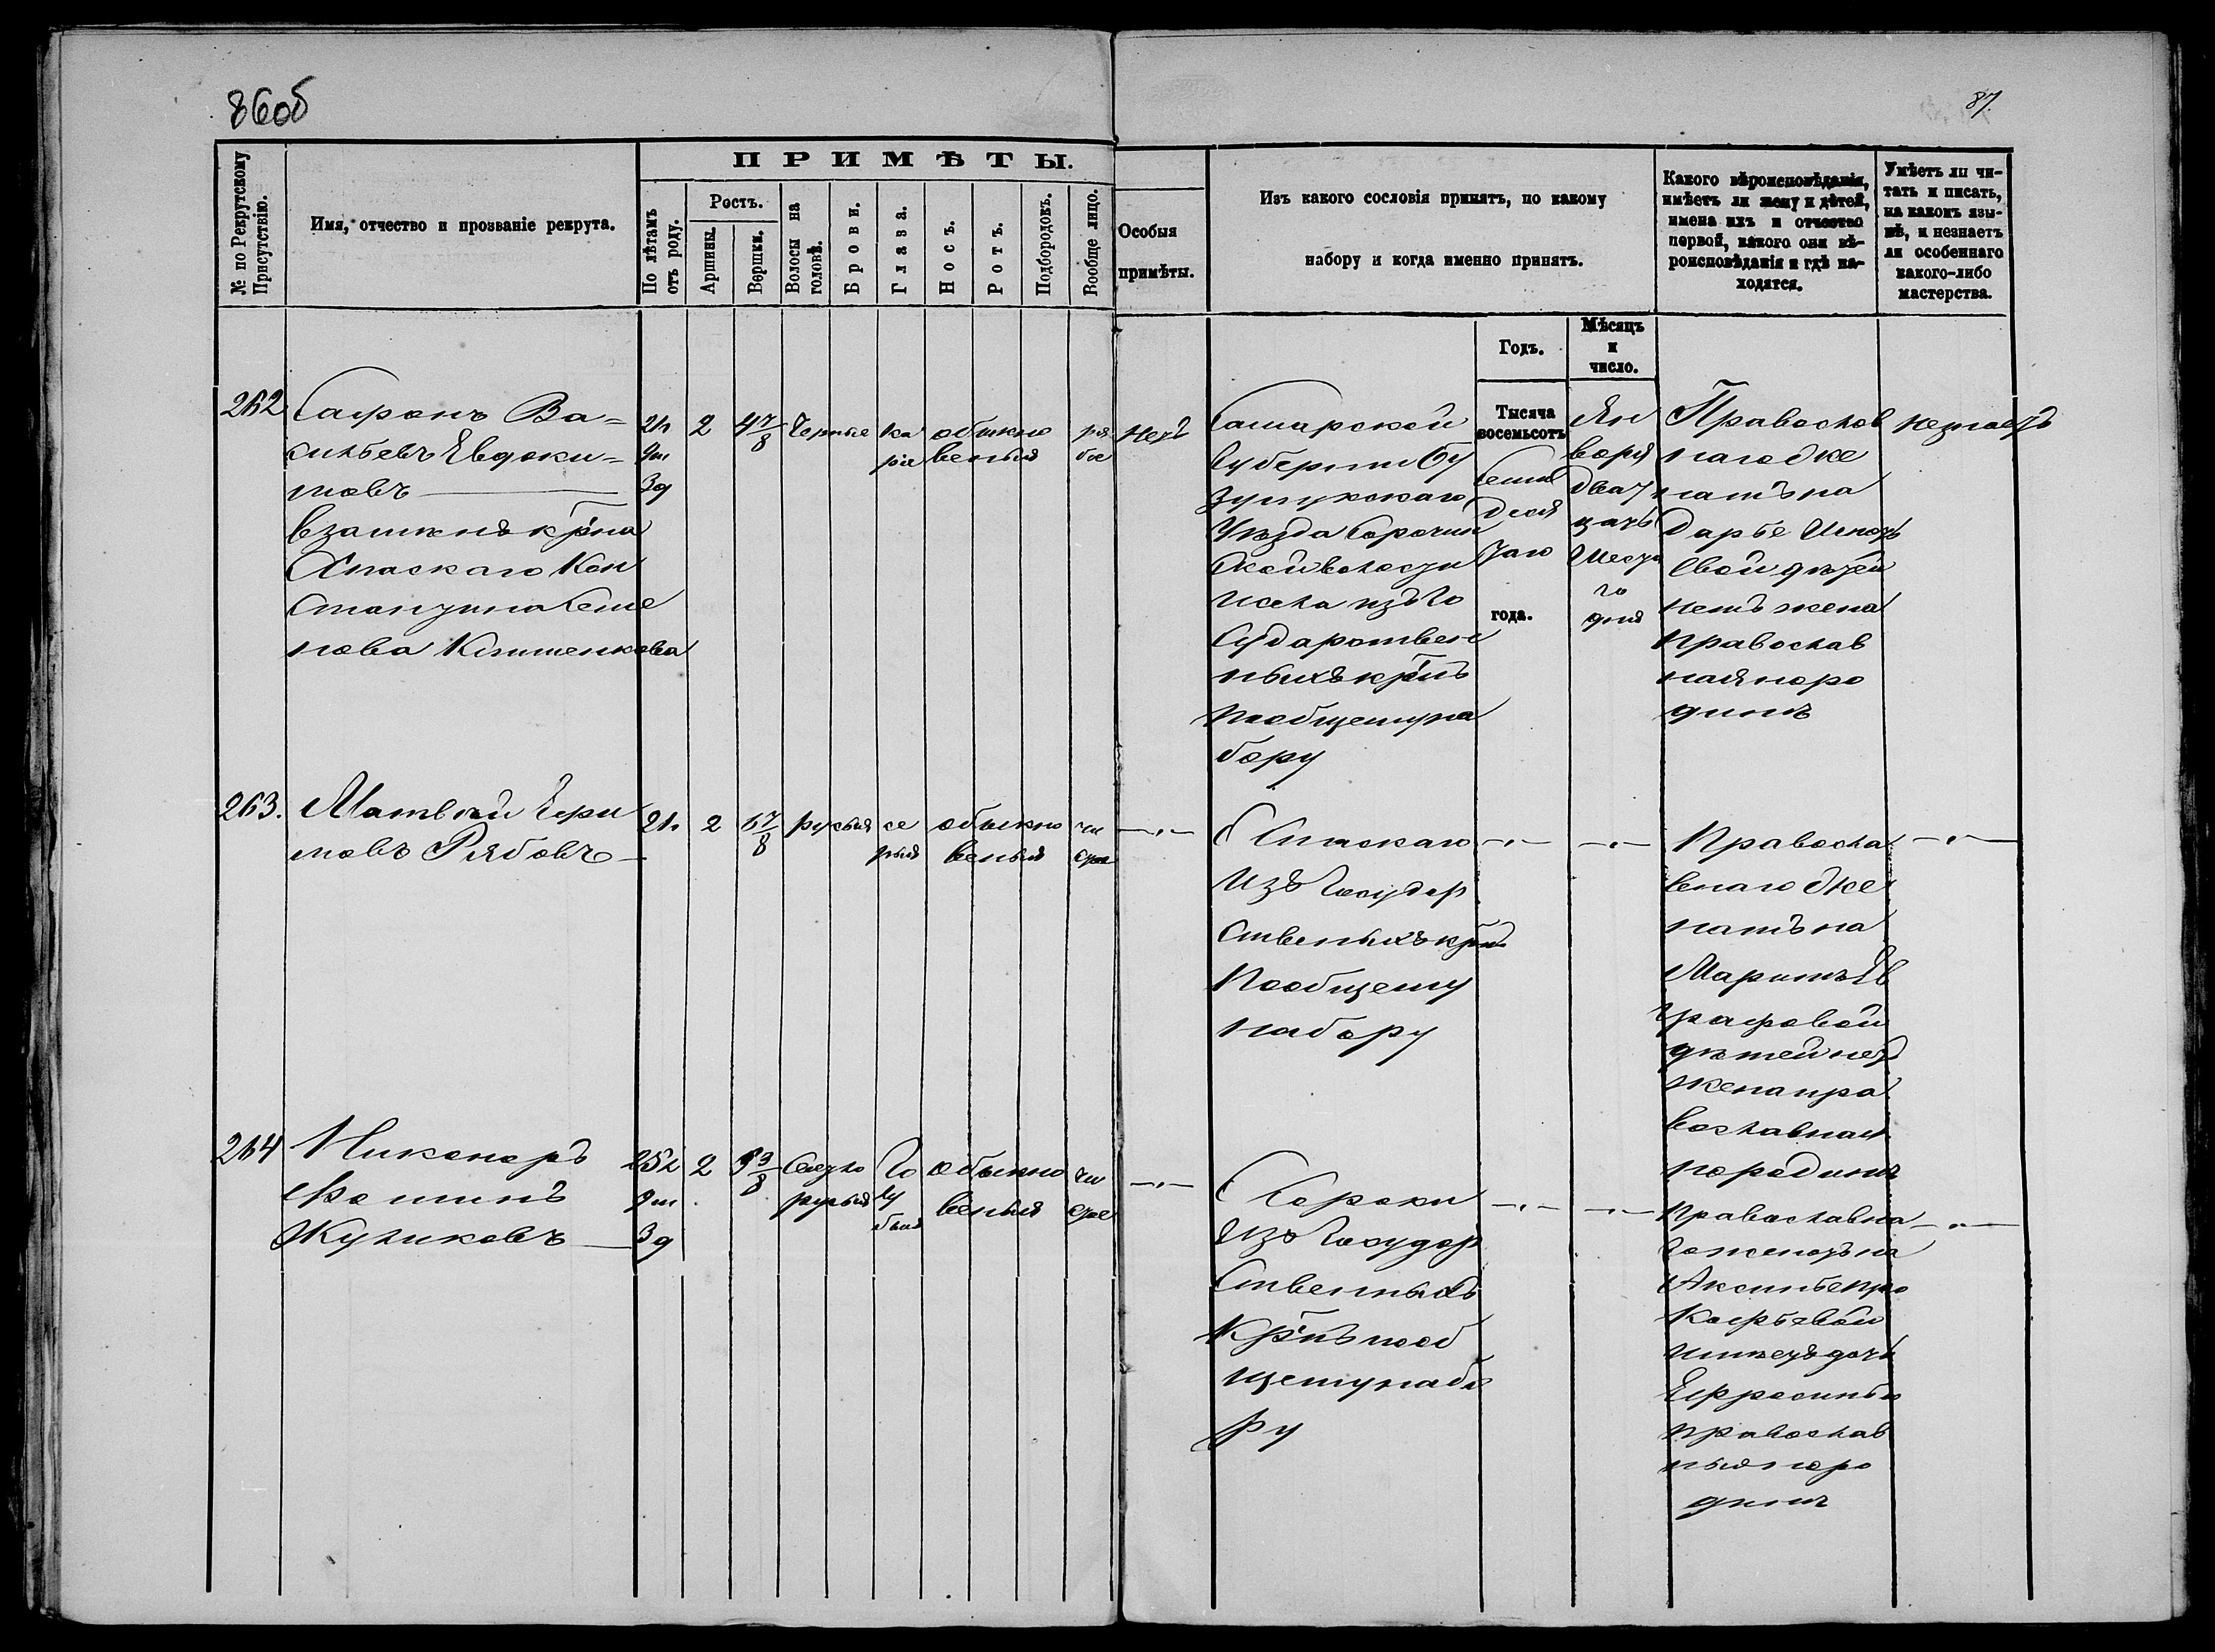 86об
87.
№ по Рекрутскому Присутствію.
Имя, отчество и прозваніе рекрута.
ПРИМѢТЫ.
По лѣтамъ отъ роду.
Ростъ.
Аршины.
Вершки.
Волосы на головѣ.
Брови.
Глаза.
Носъ.
Ротъ.
Подбородокъ.
Вообще лицо.
Особыя
примѣты.
Изъ какого сословія принятъ, по какому
набору и когда именно принятъ.
Какого вѣроисповѣданія,
имѣетъ ли жену и дѣтей,
имена ихъ и отчество
первой, какого они вѣ-
роисповѣданія и гдѣ на-
ходятся.
Умѣетъ ли чи-
тать и писать,
на какомъ язы-
кѣ, и незнаетъ
ли особеннаго
какого-либо
мастерства.
Годъ.
Мѣсяцъ
и
число.
262
Сафонъ Ва=
сильевъ Евдоки=
мовъ
взаменъ кр̃на
Спаскаго Кон
стантина Семе
нова
21л
9м
3д
2
4 7/8
Черные
ка
ріе
обыкно
веный
ря
бое
нетъ
Самарской
Губерніи Бу
зулукскаго
Уезда Сорочин
ской волости
исела изъ Го
сударствен
ныхъ кр̃нъ
пообщему на
бору
Тысяча
восемьсотъ
семи
деся
таго
года.
Ян
варя
двад
цать
шесто
го
дня
Православ
наго же
натъ на
Дарье Игнать
евой детей
нетъ жена
православ
ная на ро
дине
незнаетъ
263.
Матвей Ефи
мовъ Рябовъ
21л
2
6 7/8
русыя
се
рыя
обыкно
веный
чи
стое
—„—
С Спаскаго
изъ Государ
ственыхъ кр̃нъ
пообщему
набору
—„—
—„—
Правосла
внаго же
натъ на
Марине Ев
графовой
детей нетъ
жена пра
вославная
на родине
—„—
264
Никоноръ
Фоминъ
Куликовъ
25л
9м
3д
2
5 3/8
Светло
русыя
Го
лу
быя
обыкно
веный
чи
стое
—„—
С Сороки
изъ Государ
ственныхъ
кр̃нъ пооб
щему набо
ру
—„—
—„—
Православна
го женатъ на
Аксинье Про
кофьевой
имеетъ дочь
Ефросинью
православ
ныя на ро
дине
—„—